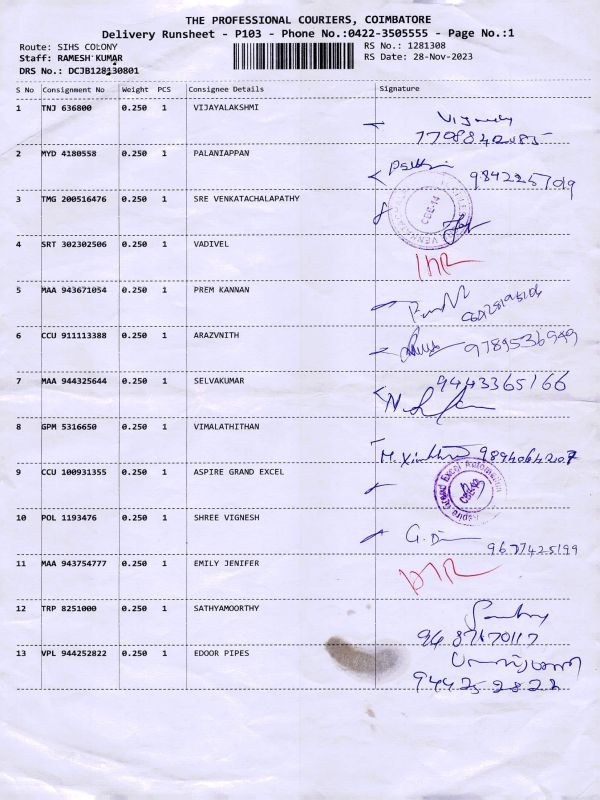 THE PROFESSIONAL COURIERS, COIMBATORE
Delivery Runsheet - P103 - Phone No.:0422-3505555 - Page No.:1
Route: SIHS COLONY RS No.: 1281308
Staff: RAMESH KUMAR RS Date: 28-Nov-2023
DRS No.: DCJB128130801
S No Consignment No Weight PCS Consignee Details Signature
1 TNJ 636800 0.250 1 VIJAYALAKSHMI
2 MYD 4180558 0.250 1 PALANIAPPAN
9842257019
3 TMG 200516476 0.250 1 SRE VENKATACHALAPATHY
CBE-14
4 SRT 302302506 0.250 1 VADIVEL
5 MAA 943671054 0.250 1 PREM KANNAN
6 CCU 911113388 0.250 1 ARAZVNITH
9789536949
7 MAA 944325644 0.250 1 SELVAKUMAR
9443365166
8 GPM 5316650 0.250 1 VIMALATHITHAN
9894064207
9 CCU 100931355 0.250 1 ASPIRE GRAND EXCEL
Aspire Grand Excel Automation
10 POL 1193476 0.250 1 SHREE VIGNESH
9677425199
11 MAA 943754777 0.250 1 EMILY JENIFER
12 TRP 8251000 0.250 1 SATHYAMOORTHY
13 VPL 944252822 0.250 1 EDOOR PIPES
944252822